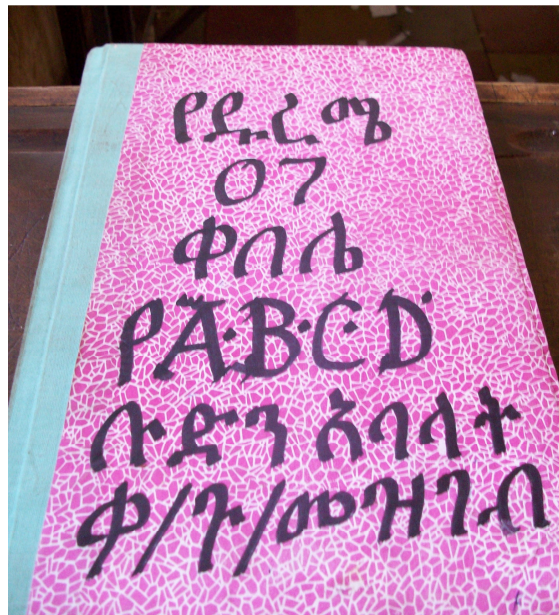 የዱረሜ
07
ቀበሌ
የA.B.C.D
ቡድን አባላት
ቃ/ጉ/መዝገብ